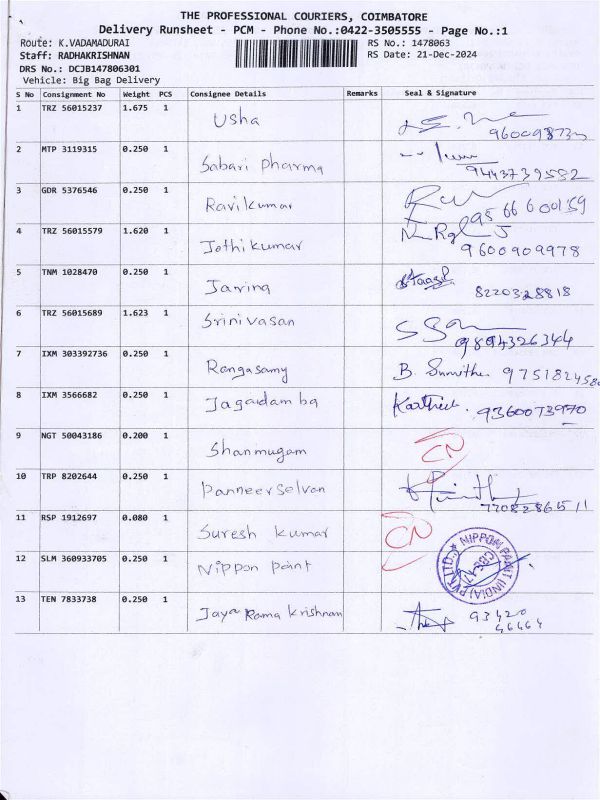 THE PROFESSIONAL COURIERS, COIMBATORE
Delivery Runsheet - PCM - Phone No.:0422-3505555 - Page No.:1
Route: K.VADAMADURAI
RS No.: 1478063
Staff: RADHAKRISHNAN
RS Date: 21-Dec-2024
DRS No.: DCJB147806301
Vehicle: Big Bag Delivery
S No Consignment No Weight PCS Consignee Details Remarks Seal & Signature
1 TRZ 56015237 1.675 1 Usha
2 MTP 3119315 0.250 1 Sabari Pharma 9443739582
3 GDR 5376546 0.250 1 Ravikumar 95 66 6 00159
4 TRZ 56015579 1.620 1 Jothikumar 9600909978
5 TNM 1028470 0.250 1 8220328818
6 TRZ 56015689 1.623 1 Srinivasan 9894326344
7 IXM 303392736 0.250 1 Rengasamy
8 IXM 3566682 0.250 1 Jagadamba Karthick. 9360073970
9 NGT 50043186 0.200 1 Shanmugam CN
10 TRP 8202644 0.250 1 Panneerselvan 7708286511
11 RSP 1912697 0.080 1 Suresh Kumar CN
12 SLM 360933705 0.250 1 Nippon paint NIPPON PAINT (INDIA) PVT.LTD.
13 TEN 7833738 0.250 1 Jaya Rama krishnan 93420
46464